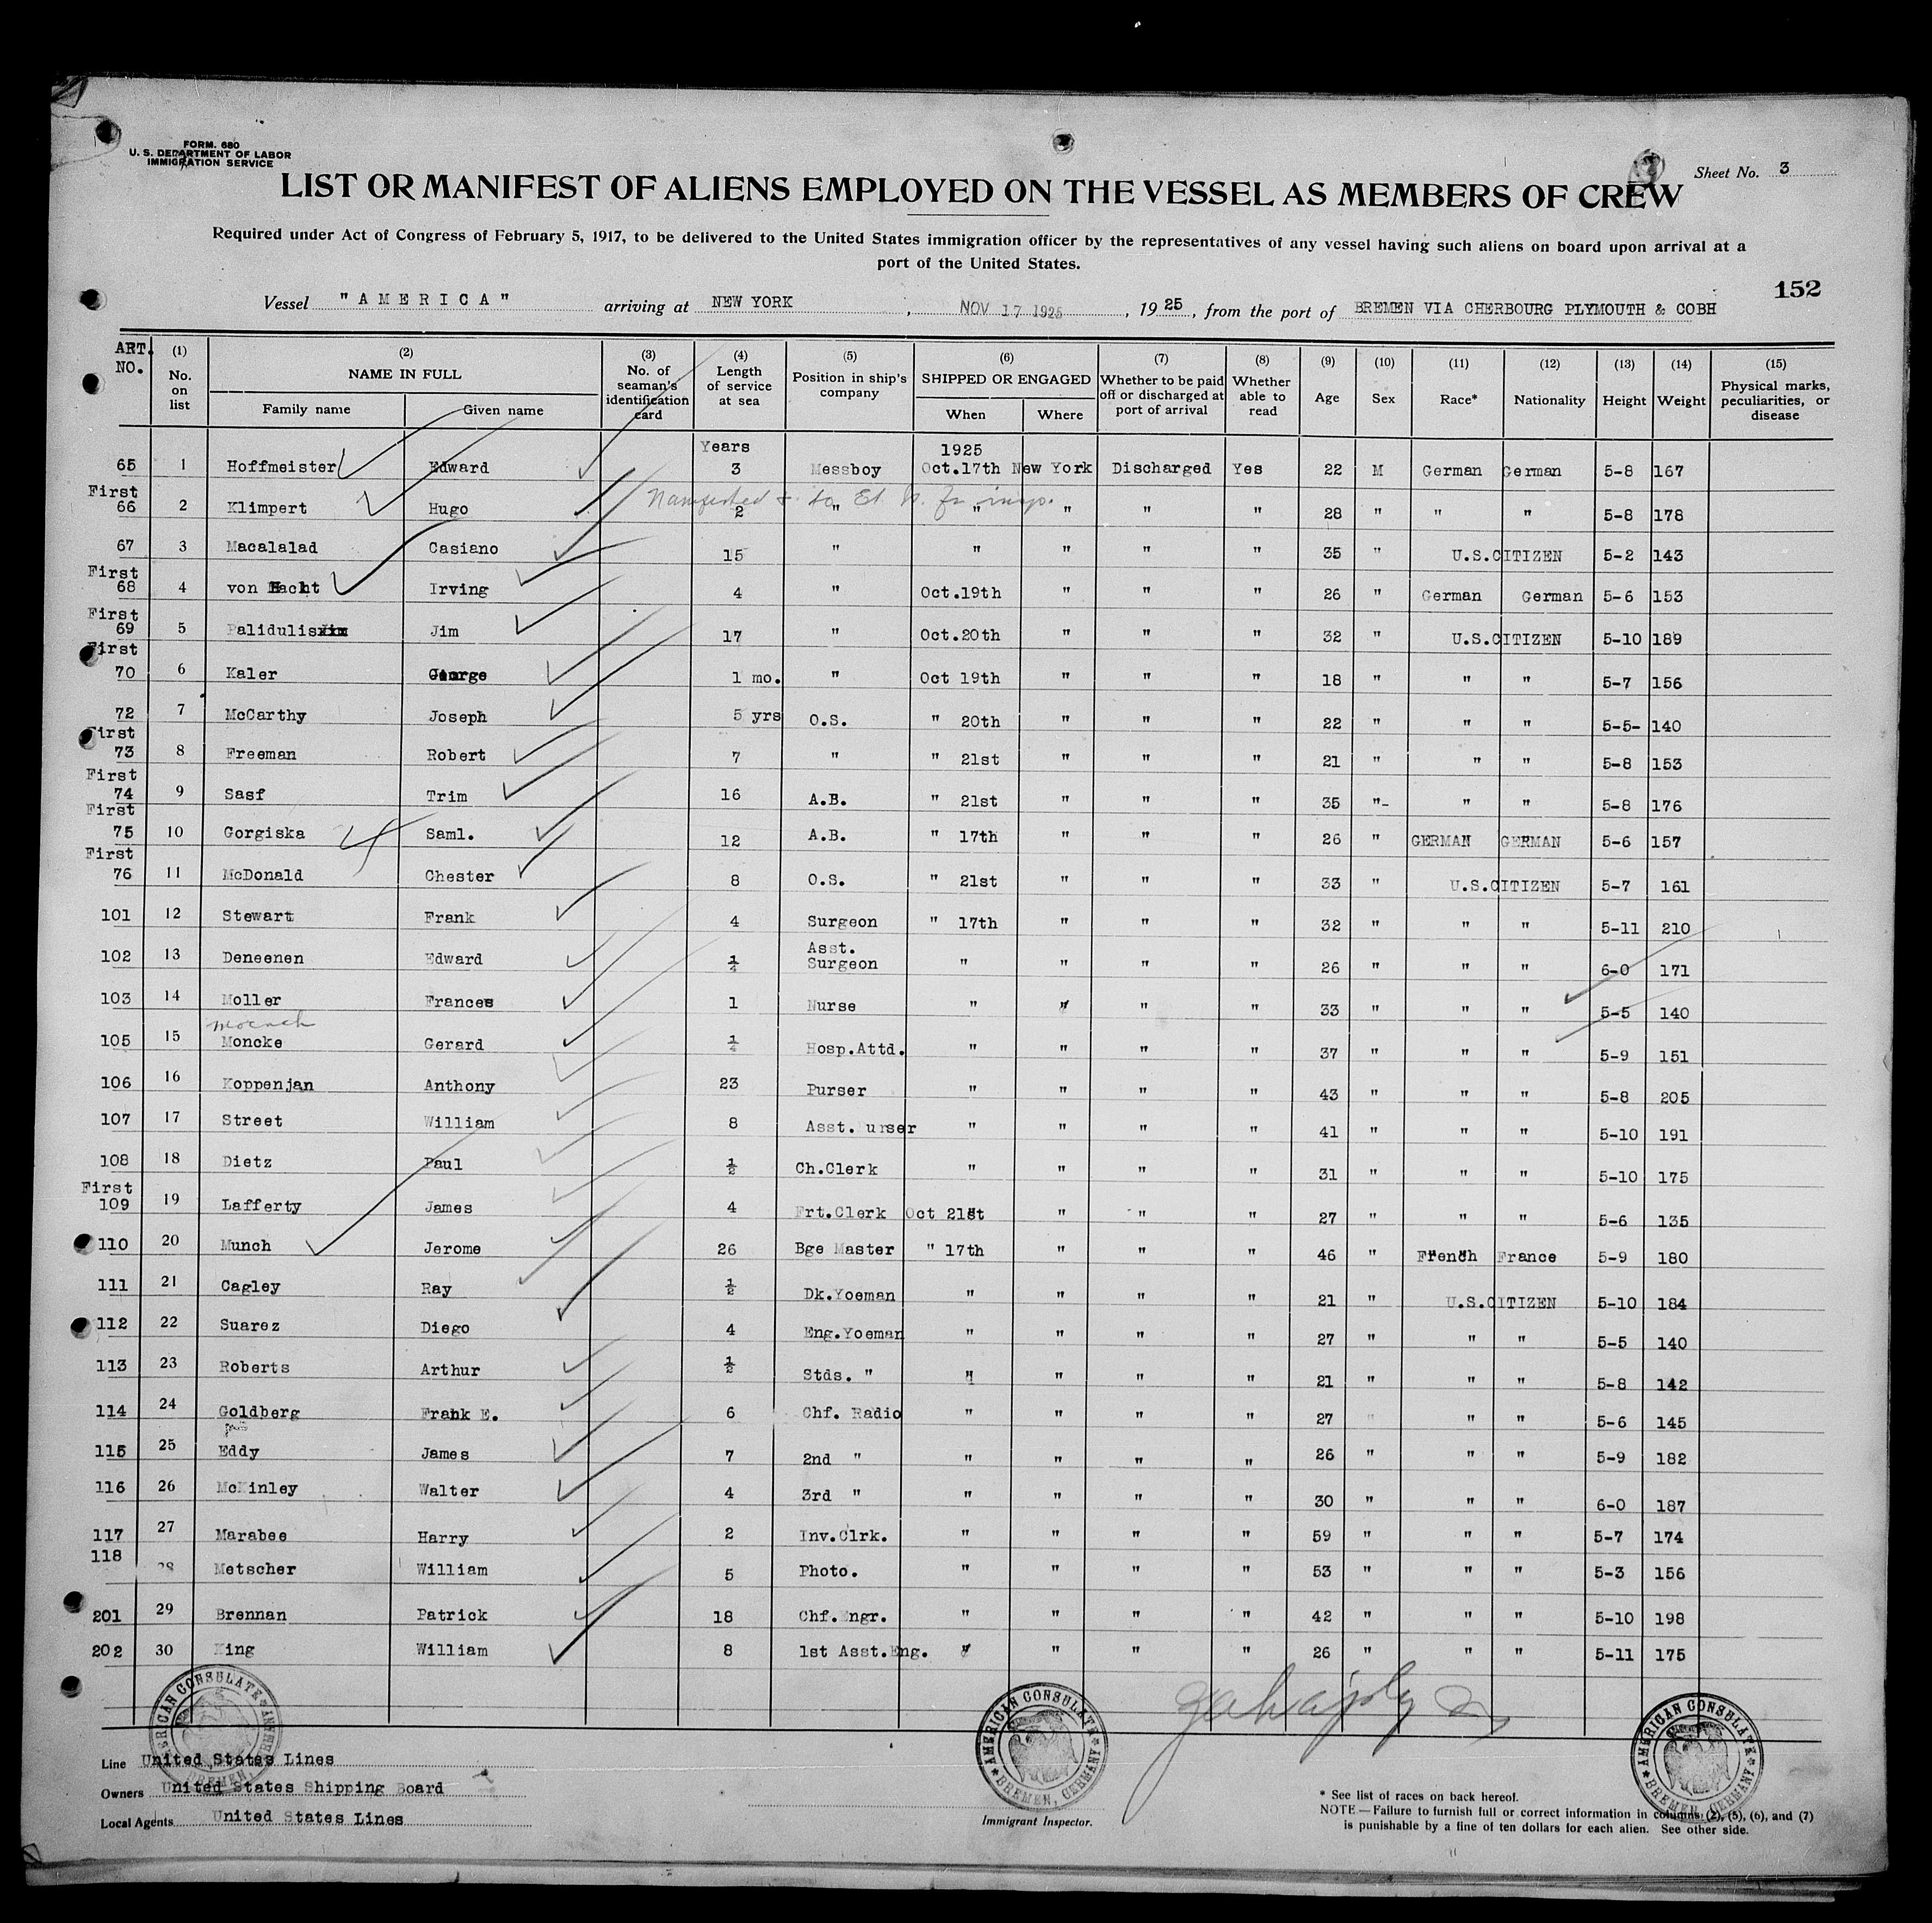 FORM. 680
U. S. DEPARTMENT OF LABOR
IMMIGRATION SERVICE
Sheet No. 3
LIST OR MANIFEST OF ALIENS EMPLOYED ON THE VESSEL AS MEMBERS OF CREW
Required under Act of Congress of February 5, 1917, to be delivered to the United States immigration officer by the representatives of any vessel having such aliens on board upon arrival at a
port of the United States.
152
Vessel "AMERICA" arriving at NEW YORK , NOV 17 1925 , 19 25 , from the port of BREMEN VIA CHERBOURG PLYMOUTH & COBH
ART. NO. (1) No. on list (2) NAME IN FULL Family name Given name (3) No. of seaman's identification card (4) Length of service at sea (5) Position in ship's company (6) SHIPPED OR ENGAGED When Where (7) Whether to be paid off or discharged at port of arrival (8) Whether able to read (9) Age (10) Sex (11) Race* (12) Nationality (13) Height (14) Weight (15) Physical marks, peculiarities, or disease
Years 1925
65 1 Hoffmeister Edward 3 Messboy Oct.17th New York Discharged Yes 22 M German German 5-8 167
First 66 2 Klimpert Hugo 2 " " " " " 28 " " " 5-8 178
67 3 Macalalad Casiano 15 " " " " " 35 " U.S.CITIZEN 5-2 143
First 68 4 von Hacht Irving 4 " Oct.19th " " " 26 " German German 5-6 153
First 69 5 Palidulis Jim 17 " Oct.20th " " " 32 " U.S.CITIZEN 5-10 189
First 70 6 Kaler George 1 mo. " Oct 19th " " " 18 " " " 5-7 156
72 7 McCarthy Joseph 5 yrs O.S. " 20th " " " 22 " " " 5-5- 140
First 73 8 Freeman Robert 7 " " 21st " " " 21 " " " 5-8 153
First 74 9 Sasf Trim 16 A.B. " 21st " " " 35 "- " " 5-8 176
First 75 10 Gorgiska Saml. 12 A.B. " 17th " " " 26 " GERMAN GERMAN 5-6 157
First 76 11 McDonald Chester 8 O.S. " 21st " " " 33 " U.S.CITIZEN 5-7 161
101 12 Stewart Frank 4 Surgeon " 17th " " " 32 " " " 5-11 210
102 13 Deneenen Edward ¼ Asst. Surgeon " " " " 26 " " " 6-0 171
103 14 Moller Frances 1 Nurse " " " " 33 " " " 5-5 140
105 15 Moncke Gerard ¼ Hosp.Attd. " " " " 37 " " " 5-9 151
106 16 Koppenjan Anthony 23 Purser " " " " 43 " " " 5-8 205
107 17 Street William 8 Asst. urser " " " " 41 " " " 5-10 191
108 18 Dietz Paul ½ Ch.Clerk " " " " 31 " " " 5-10 175
First 109 19 Lafferty James 4 Frt.Clerk Oct 21st " " " 27 " " " 5-6 135
110 20 Munch Jerome 26 Bge Master " 17th " " " 46 " French France 5-9 180
111 21 Cagley Ray ½ Dk.Yoeman " " " " 21 " U.S.CITIZEN 5-10 184
112 22 Suarez Diego 4 Eng.Yoeman " " " " 27 " " " 5-5 140
113 23 Roberts Arthur ½ Stds. " " " " " 21 " " " 5-8 142
114 24 Goldberg Frank E. 6 Chf. Radio " " " " 27 " " " 5-6 145
115 25 Eddy James 7 2nd " " " " " 26 " " " 5-9 182
116 26 McKinley Walter 4 3rd " " " " " 30 " " " 6-0 187
117 27 Marabee Harry 2 Inv.Clrk. " " " " 59 " " " 5-7 174
118 28 Metscher William 5 Photo. " " " " 53 " " " 5-3 156
201 29 Brennan Patrick 18 Chf.Engr. " " " " 42 " " " 5-10 198
202 30 King William 8 1st Asst.Eng. " " " " 26 " " " 5-11 175
AMERICAN CONSULATE BREMEN, GERMANY
AMERICAN CONSULATE BREMEN, GERMANY
AMERICAN CONSULATE BREMEN, GERMANY
Line United States Lines
Owners United States Shipping Board
Local Agents United States Lines
Immigrant Inspector.
* See list of races on back hereof.
NOTE — Failure to furnish full or correct information in columns (2), (5), (6), and (7)
is punishable by a fine of ten dollars for each alien. See other side.